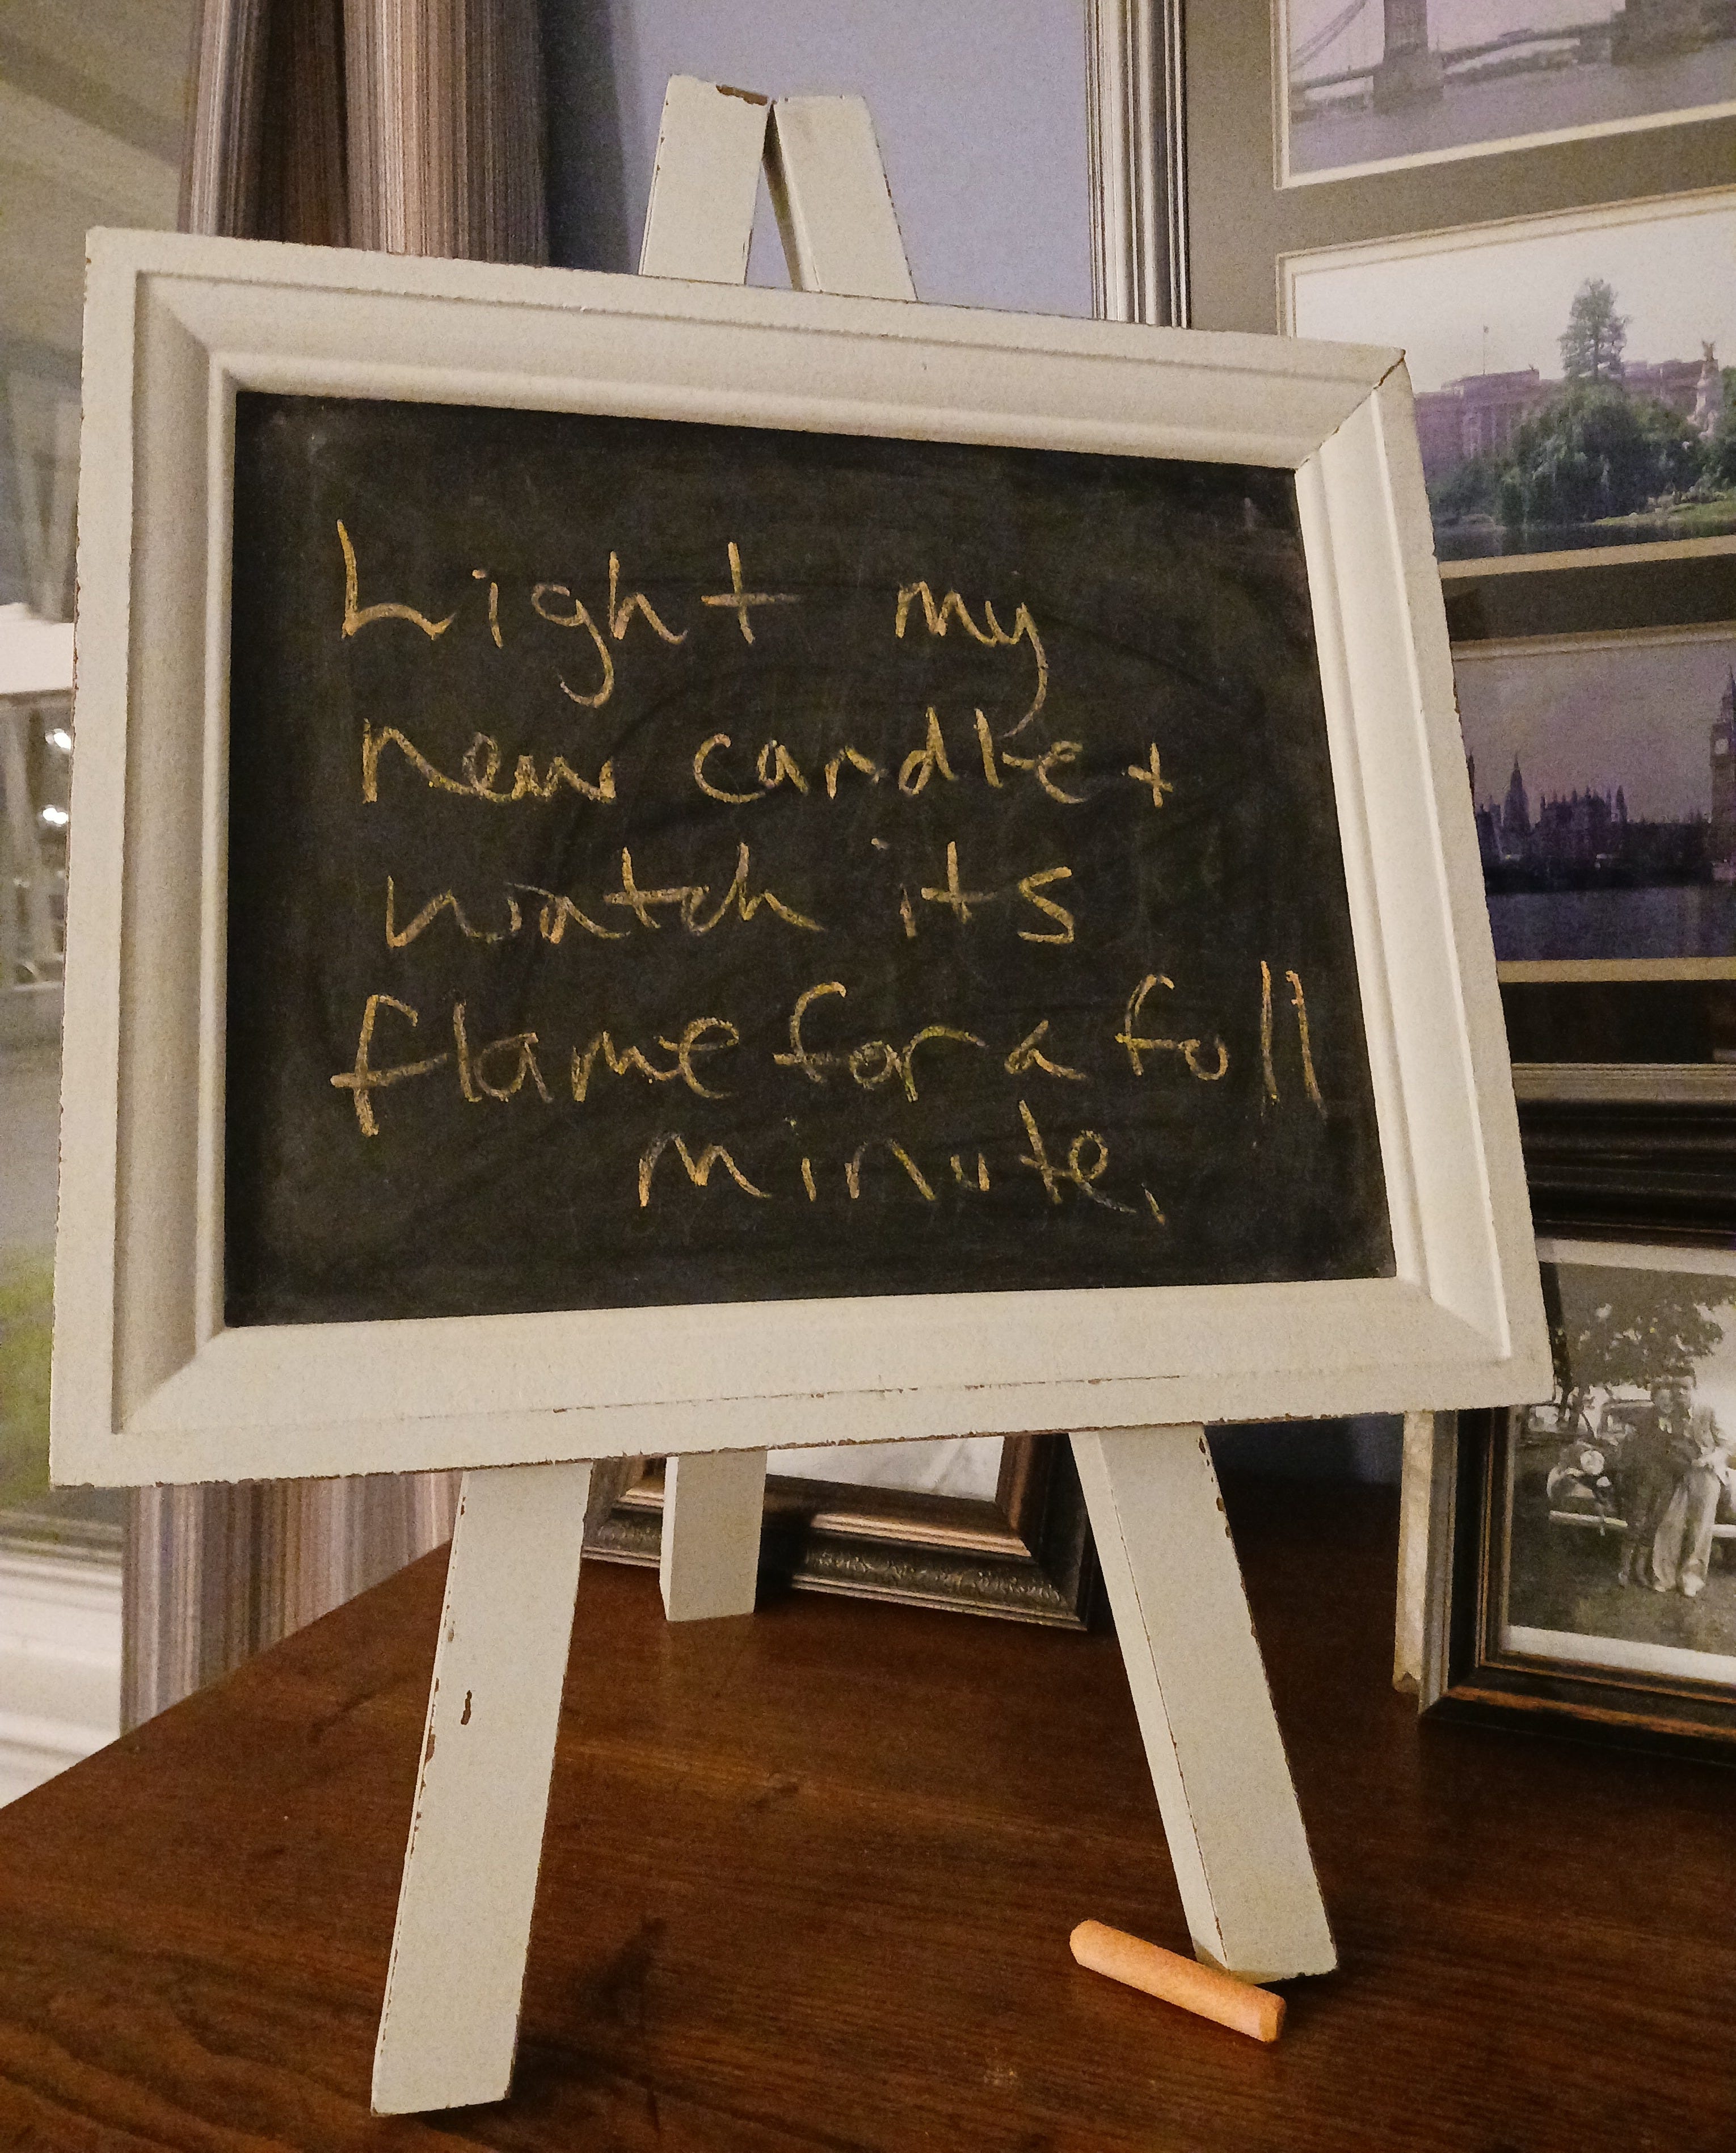 Light my
new candle +
watch its
flame for a full
minute.